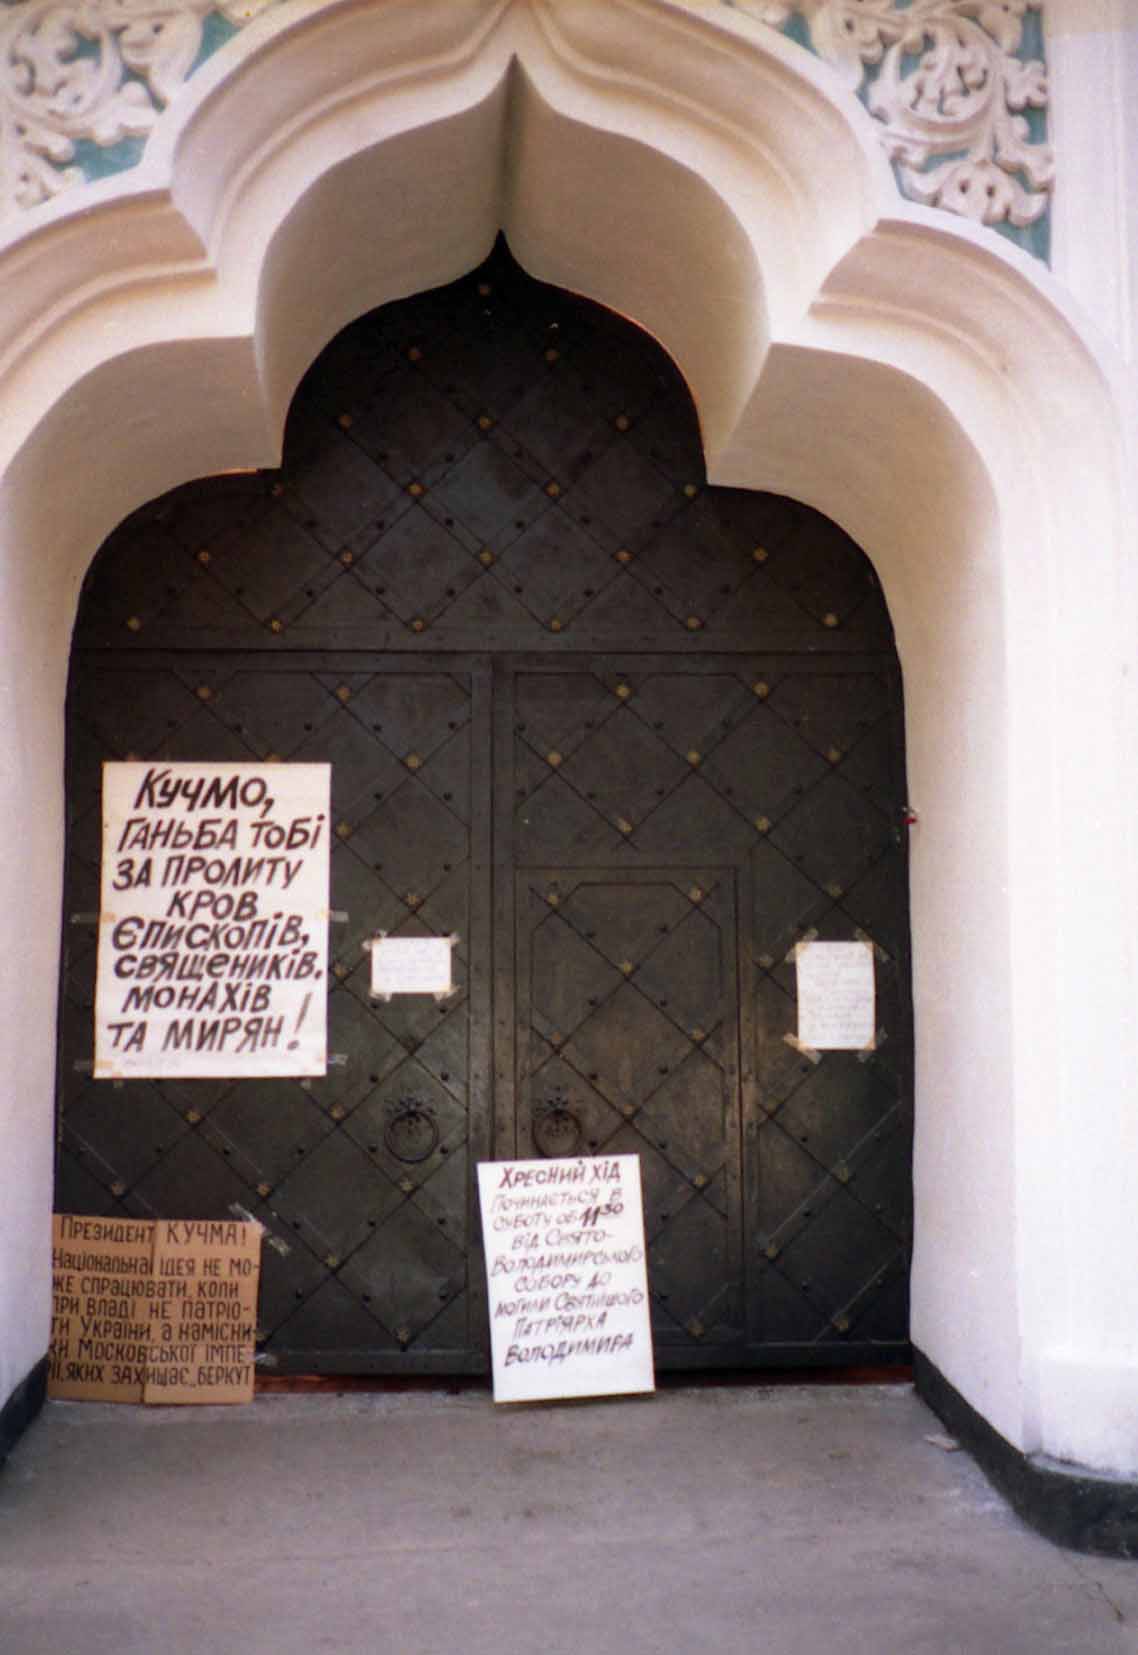 Кучмо,
ганьба тобі
за пролиту
кров
єпископів,
священиків,
монахів
та мирян!
Президент КУЧМА!
Національна ідея не мо-
же спрацювати, коли
при владі не патріо-
ти України, а намісни-
ки Московської імпе-
рії, яких захищає „Беркут
Хресний хід
починається в
суботу об 11 30
від Свято-
Володимирського
собору до
могили Святішого
Патріярха
Володимира